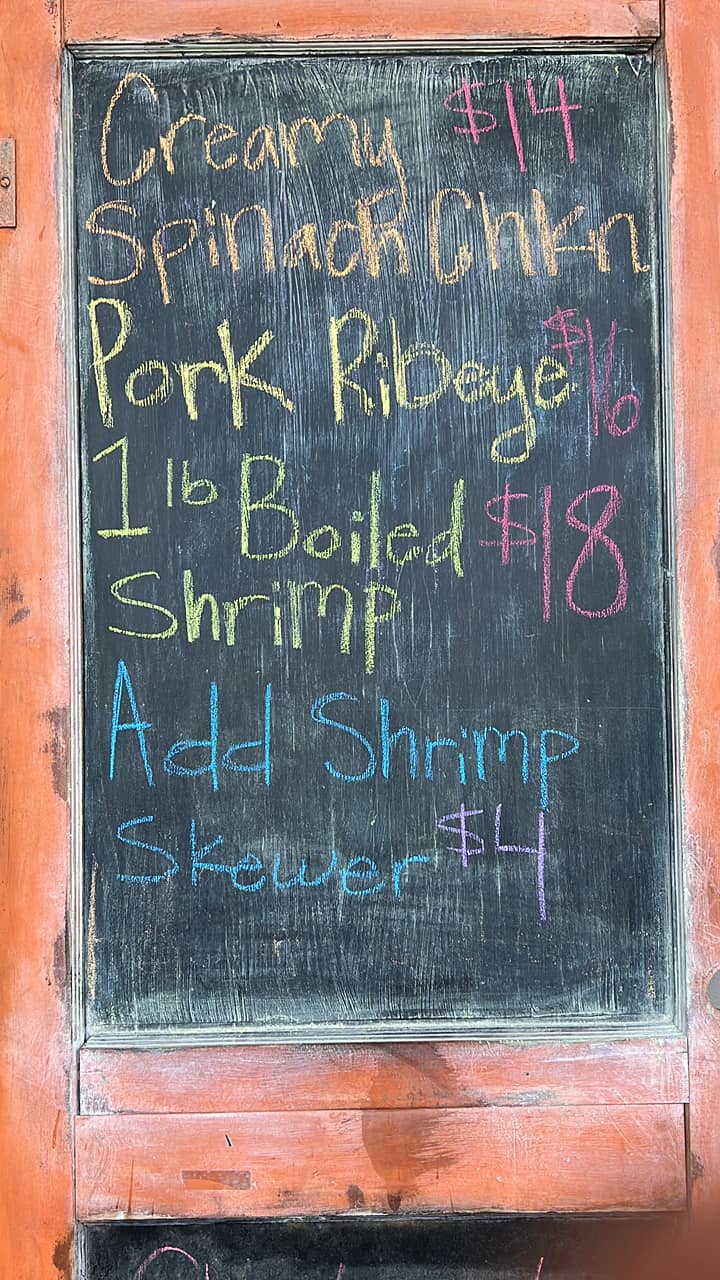 Creamy $14
Spinach Chkn
Pork Ribeye $16
1 lb Boiled $18
Shrimp
Add Shrimp
Skewer $4